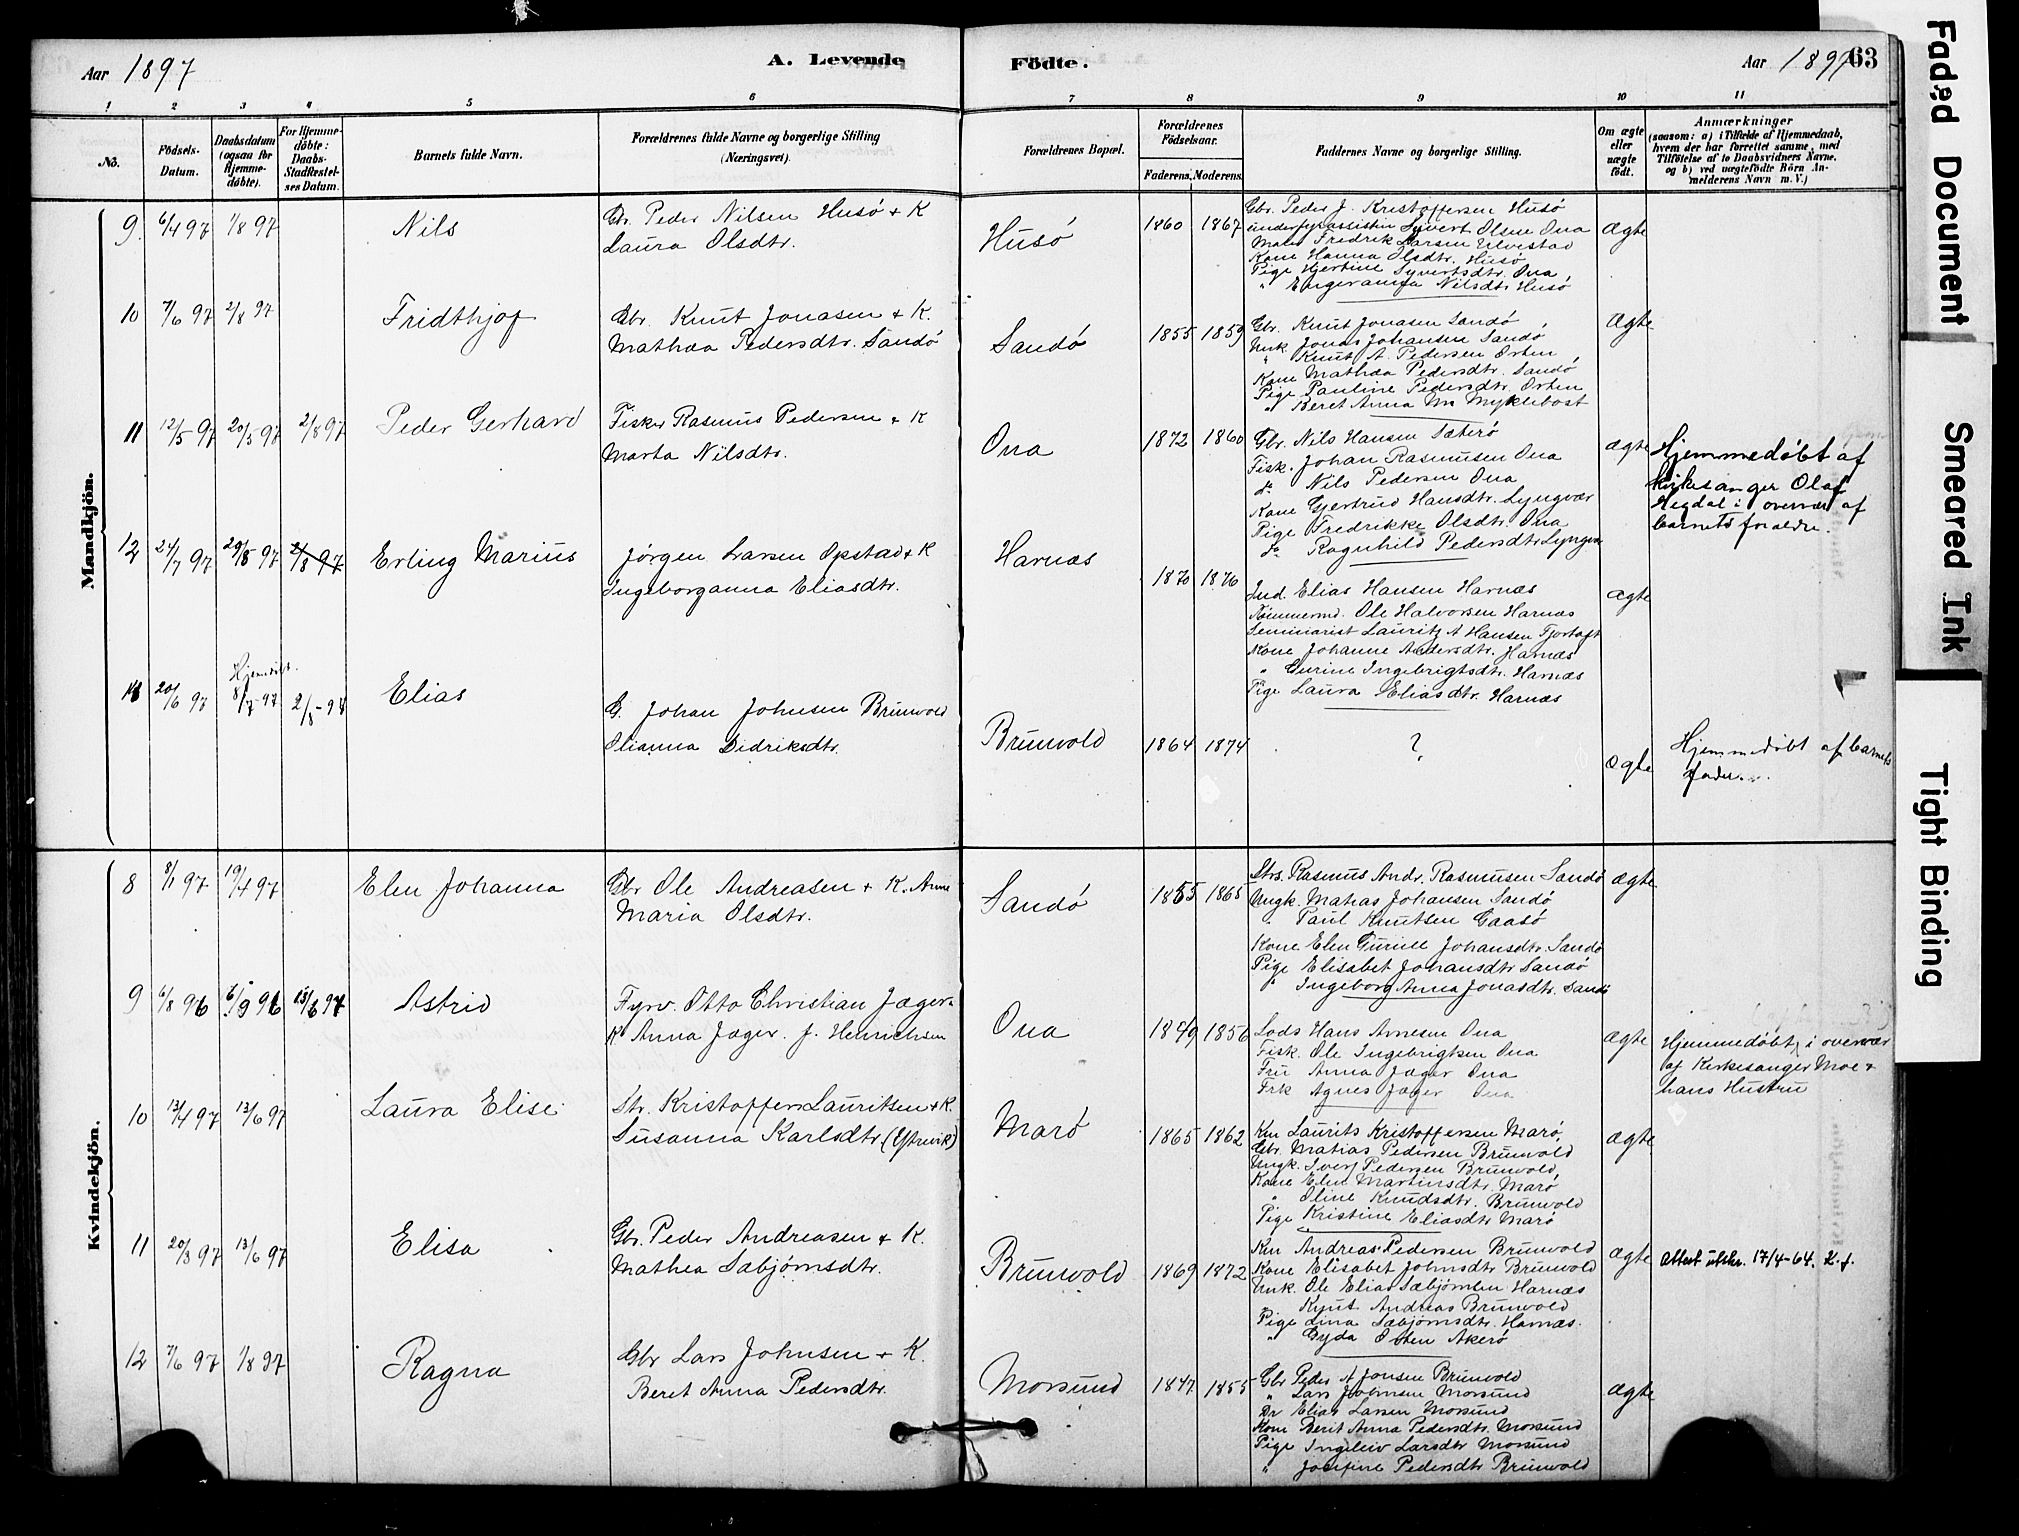 Aar 1897
A. Levende Födte.
Aar 1897
63
1 2 3 4 5 6 7 8 9 10 11
No.
Födsels-Datum.
Daabsdatum (ogsaa for Hjemme-døbte).
For Hjemme-døbte: Daabs-Stadfæstel-ses Datum.
Barnets fulde Navn.
Forældrenes fulde Navne og borgerlige Stilling (Næringsvei).
Forældrenes Bopæl.
Forældrenes Födselsaar.
Faderens. Moderens.
Faddernes Navne og borgerlige Stilling.
Om ægte eller uægte født.
Anmærkninger
(saasom: a) i Tilfælde af Hjemmedaab, hvem der har forrettet samme, med Tilføtelse af to Daabsvidners Navne, og b) ved uægtefødte Börn An-melderens Navn m. V.)
Mandkjön.
9. 6/4 97 1/8 97 Nils
Gbr. Peder Nilsen Husö + K
Laura Olsdtr.
Husö 1860 1867
Gbr. Peder J. Kristoffersen Husö
underfyrassistin Syvert Olsen Ona
Fredrik Larsen Ulvestad
Kone Hanna Olsdtr. Husö
Pige Hjertine Syvertsdtr. Ona,
" Nilsdtr Husö
ægte
10 7/6 97 2/8 97 Fridthjof
Gbr. Knut Jonasen + K.
Mathea Pedersdtr. Sandö
Sandö 1855 1859
Gbr. Knut Jonasen Sandö
Unk. Jonas Johansen Sandö
" Knut A. Pedersen Orten
Kone Mathea Pedersdtr. Sandö
Pige Pauline Pedersdtr. Orten
" Beret Anna Myklebost
Ægte
11 12/5 97 20/5 97 2/8 97 Peder Gerhard
Fisker Rasmus Pedersen + K
Marta Nilsdtr.
Ona 1872 1860
Gbr. Nils Hansen Sæterö
Fisk. Johan Rasmusen Ona
do Nils Pedersen Ona
Kone Gjertrud Hansdtr. Lyngvær
Pige Fredrikke Olsdtr. Ona
do Ragnhild Pedersdtr Lyngvær
ægte
Hjemmedøbt af
kirkesanger Olaf
Hegdal i overvær af
barnets forældre.
12 24/7 97 29/8 97 2/8 97 Erling Marius
Jörgen Larsen Opstad + K
Ingeborganna Eliasdtr.
Harnæs 1870 1876
Ind. Elias Hansen Harnæs
Ole Halvorsen Harnæs
Seminarist Lauritz A Hansen Fjørtoft
Kone Johanne Andersdtr. Harnæs
" Gurine Ingebrigtsdtr. Harnæs
Pige Laura Eliasdtr. Harnæs
ægte
20/6 97 Hjemdöbt.
8/7-97 2/8-97 Elias
G. Johan Johnsen Brunvold
Olianna Didriksdtr.
Brunvold 1864 1874
?
ægte
Hjemmedöbt af barnets
fader.
Kvindekjön.
8 8/1 97 19/4 97 Elen Johanna
Gbr Ole Andreasen + K. Anne
Maria Olsdtr.
Sandö 1855 1865
Strs. Rasmus Andr. Rasmusen Sandö
Ungk. Matias Johansen Sandö
Paul Knutsen Gaasö
Kone Elen Gurine Johansdtr. Sandö
Pige Elisabet Johansdtr Sandö
" Ingeborg Anna Jonasdtr. Sandö
ægte
9 6/8 96 6/9 96 13/6 97 Astrid
Fyrv. Otto Christian Jæger +
K Anna Jæger. f. Henrichsen
Ona 1849 1856
Lods Hans Arnesen Ona
Fisk. Ole Ingebrigtsen Ona
Fru Anna Jæger Ona
Frk Agnes Jæger Ona
ægte
Hjemmedøbt i overvær
af Kirkesanger Moe +
hans Hustru
10 13/4 97 13/6 97 Laura Elise
Str. Kristoffer Lauritsen + K.
Susanna Karlsdtr. (Ytrevik)
Marö 1865 1862
Km Laurits Kristoffersen Marö,
Gbr. Matias Pedersen Brunvold
Ungk. Iver Pedersen Brunvold,
Kone Elen Martinsdtr. Marö
" Oline Knudsdtr. Brunvold
Pige Kristine Eliasdtr Marö
ægte
11 20/3 97 13/6 97 Elisa
Gbr. Peder Andreasen + K.
Mathea Sæbjörnsdtr.
Brunvold 1869 1872
Km Andreas Pedersen Brunvold
Kone Elisabet Johnsdtr Brunvold
Unk. Ole Elias Sæbjörnsen Harnæs
Knut Andreas Brunvold
Pige Lina Sæbjörnsdtr. Harnæs.
" Gyda Olsen Akerö
ægte
Attest utskr. 17/4-64. K.f.
12 7/6 97 1/8 97 Ragna
Gbr Lars Johnsen + K.
Beret Anna Pedersdtr.
Morsund 1847 1855
Gbr Peder A Jonsen Brunvold
" Lars Johnsen Morsund
Dr Elias Larsen Morsund
Kone Berit Anna Pedersdtr. Morsund
Pige Ingeleiv Larsdtr Morsund
" Josefine Pedersdtr Brunvold
ægte
Faded Document
Smeared Ink
Tight Binding